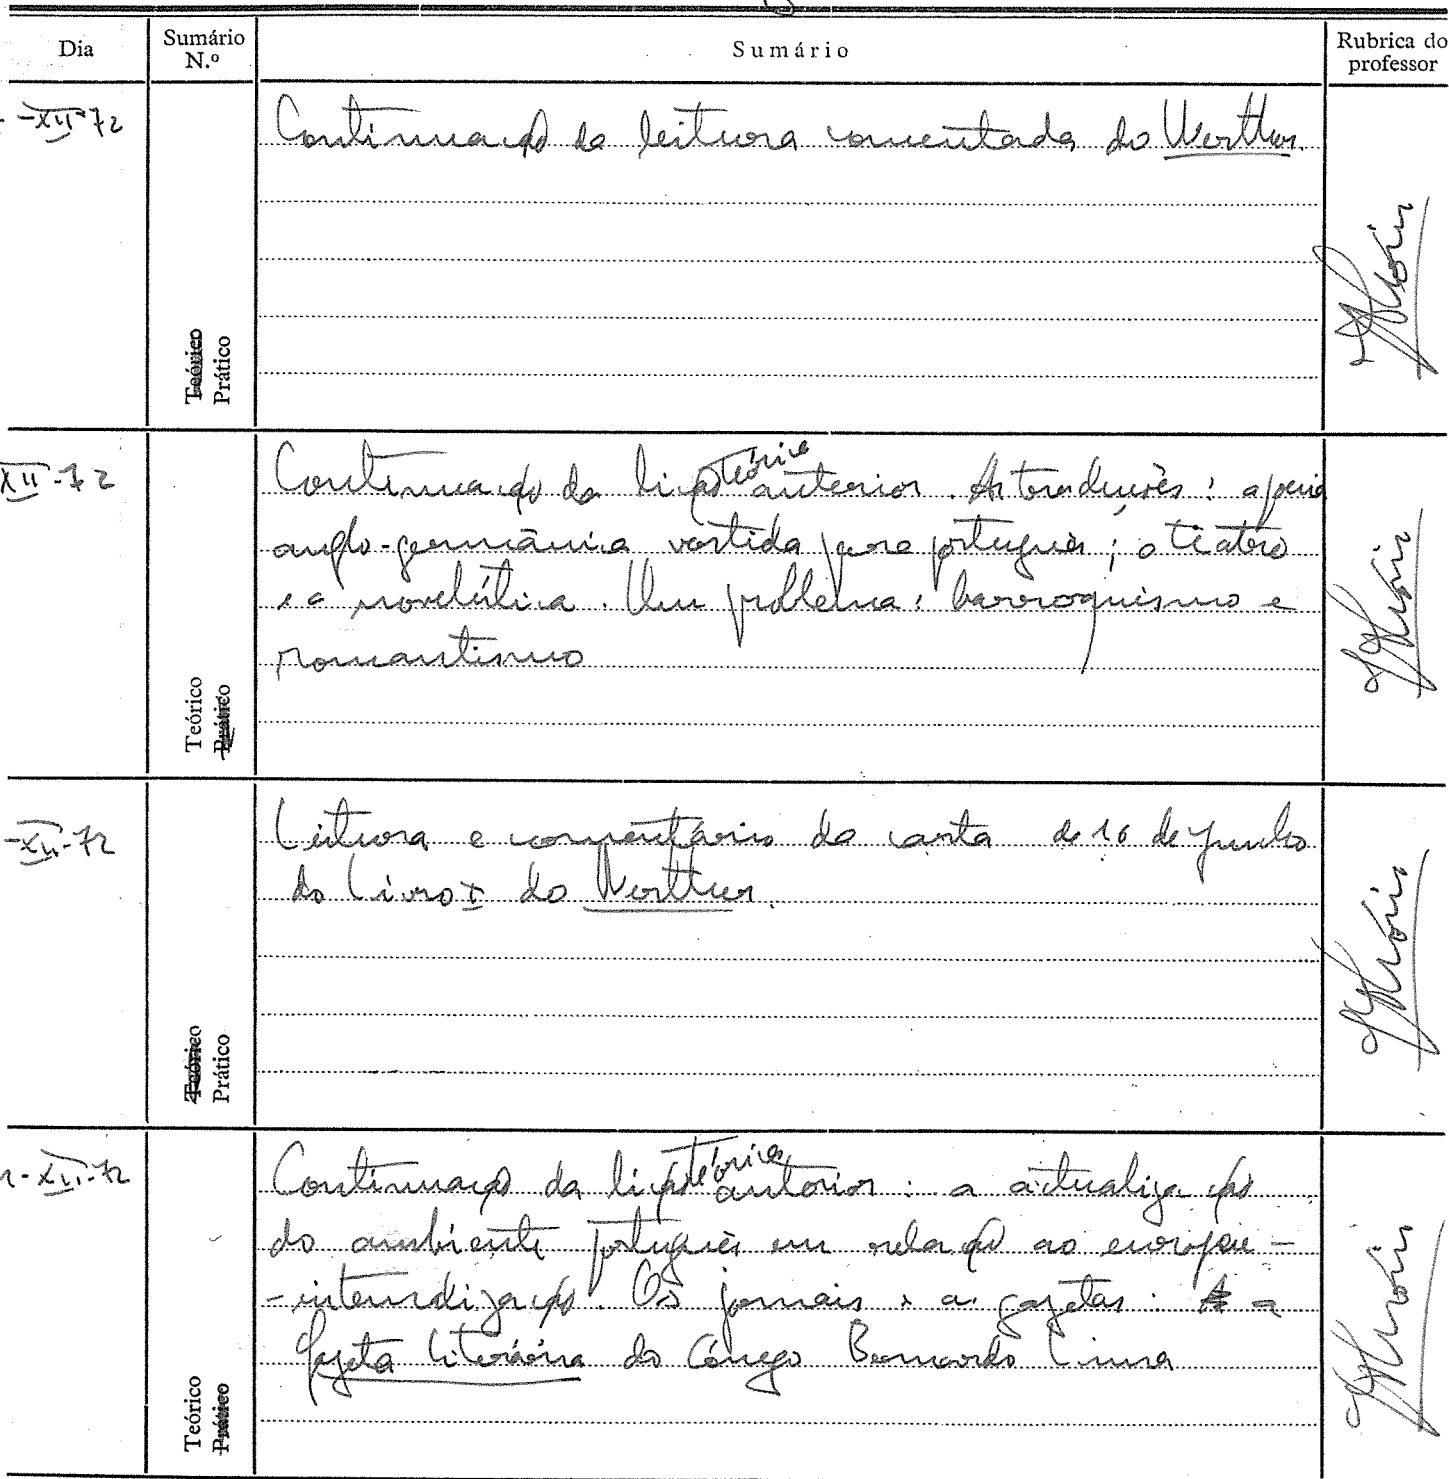 Dia
Sumário N.º
Sumário
Rubrica do professor
-XII-72
Continuação da leitura comentada do Werther.
Teórico
Prático
XII-72
Continuação da lição teórica anterior. As traduções: a poesia
anglo-germânica vertida para português; o teatro
e a novelística. Um problema: barroquismo e
romantismo
Teórico
Prático
-XII-72
Leitura e comentário da carta de 16 de Junho
do Livro I do Werther.
Teórico
Prático
-XII-72
Continuação da lição teórica anterior: a actualização
do ambiente português em relação ao europeu -
Os jornais e as gazetas: a
Gazeta Literária do Cónego Bernardo Lima
Teórico
Prático